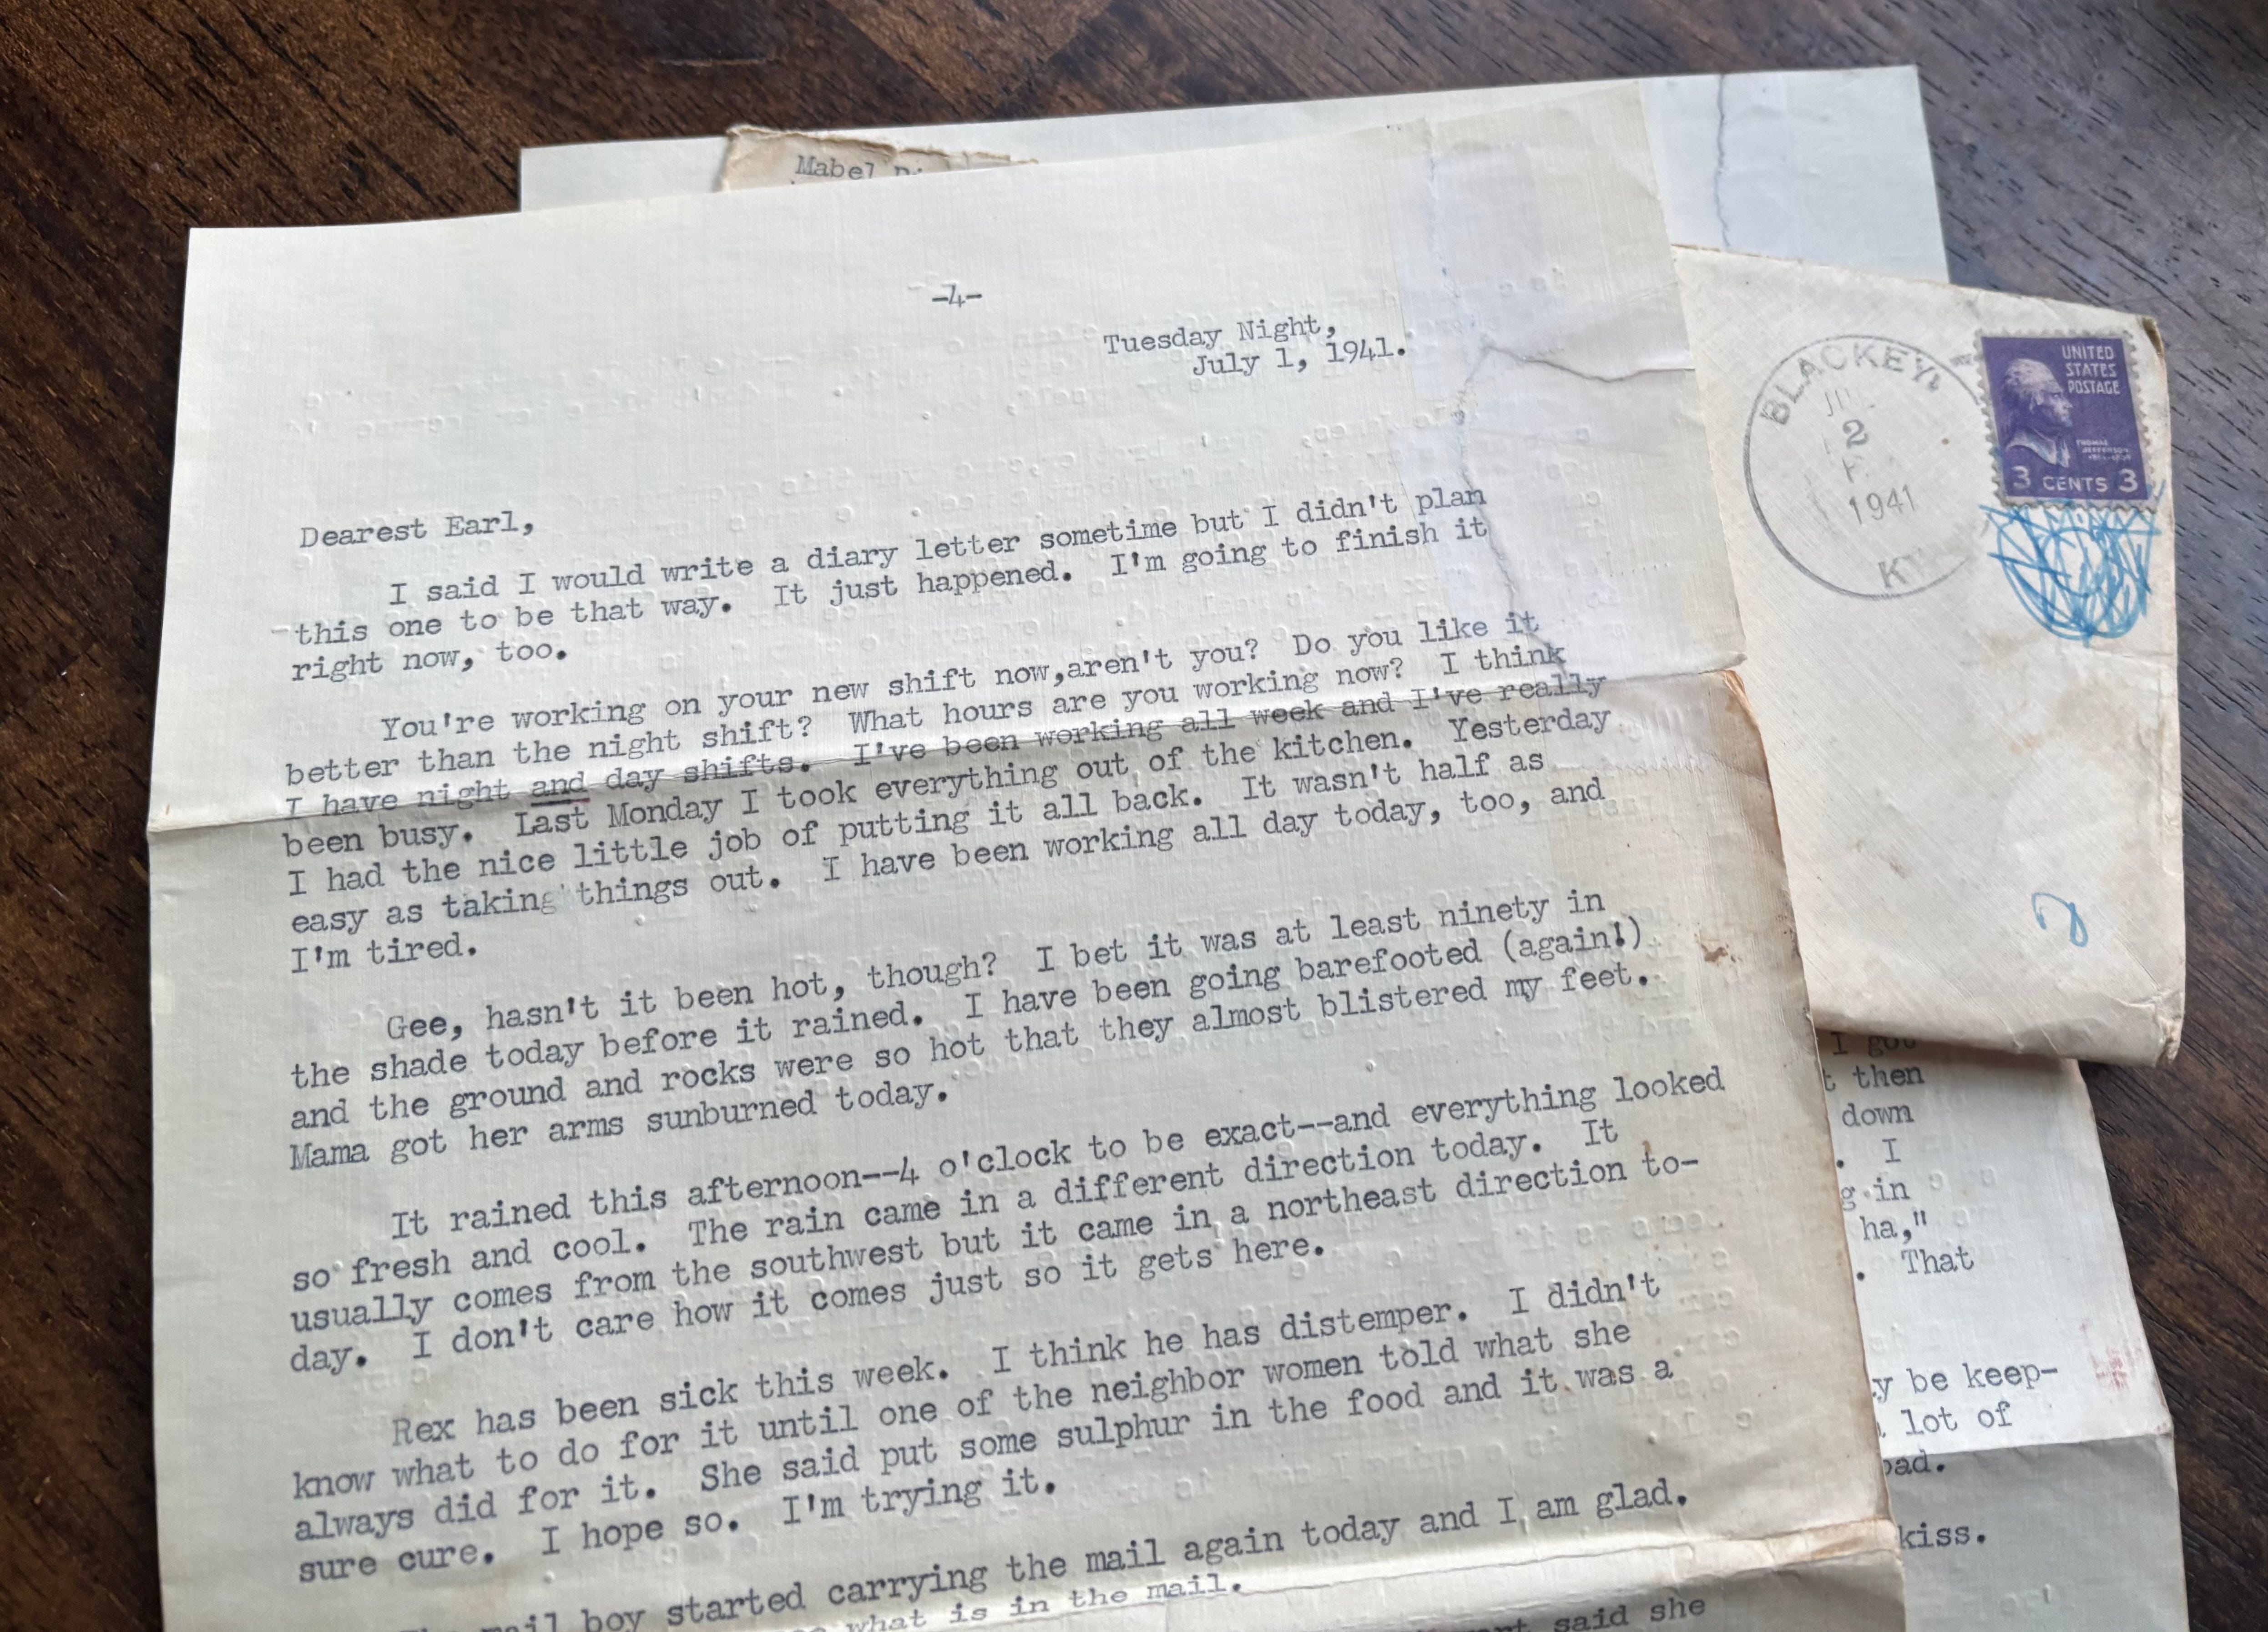 Mabel
-4-
Tuesday Night,
July 1, 1941.
Dearest Earl,
I said I would write a diary letter sometime but I didn't plan
this one to be that way. It just happened. I'm going to finish it
right now, too.
You're working on your new shift now,aren't you? Do you like it
better than the night shift? What hours are you working now? I think
I have night and day shifts. I've been working all week and I've really
been busy. Last Monday I took everything out of the kitchen. Yesterday
I had the nice little job of putting it all back. It wasn't half as
easy as taking things out. I have been working all day today, too, and
I'm tired.
Gee, hasn't it been hot, though? I bet it was at least ninety in
the shade today before it rained. I have been going barefooted (again!)
and the ground and rocks were so hot that they almost blistered my feet.
Mama got her arms sunburned today.
It rained this afternoon--4 o'clock to be exact--and everything looked
so fresh and cool. The rain came in a different direction today. It
usually comes from the southwest but it came in a northeast direction to-
day. I don't care how it comes just so it gets here.
Rex has been sick this week. I think he has distemper. I didn't
know what to do for it until one of the neighbor women told what she
always did for it. She said put some sulphur in the food and it was a
sure cure. I hope so. I'm trying it.
mail boy started carrying the mail again today and I am glad.
what is in the mail.
said she
BLACKEY
2
1941
KY
UNITED
STATES
POSTAGE
THOMAS
JEFFERSON
3 CENTS 3
I got
then
down
. I
in
ha,"
. That
be keep-
lot of
kiss.